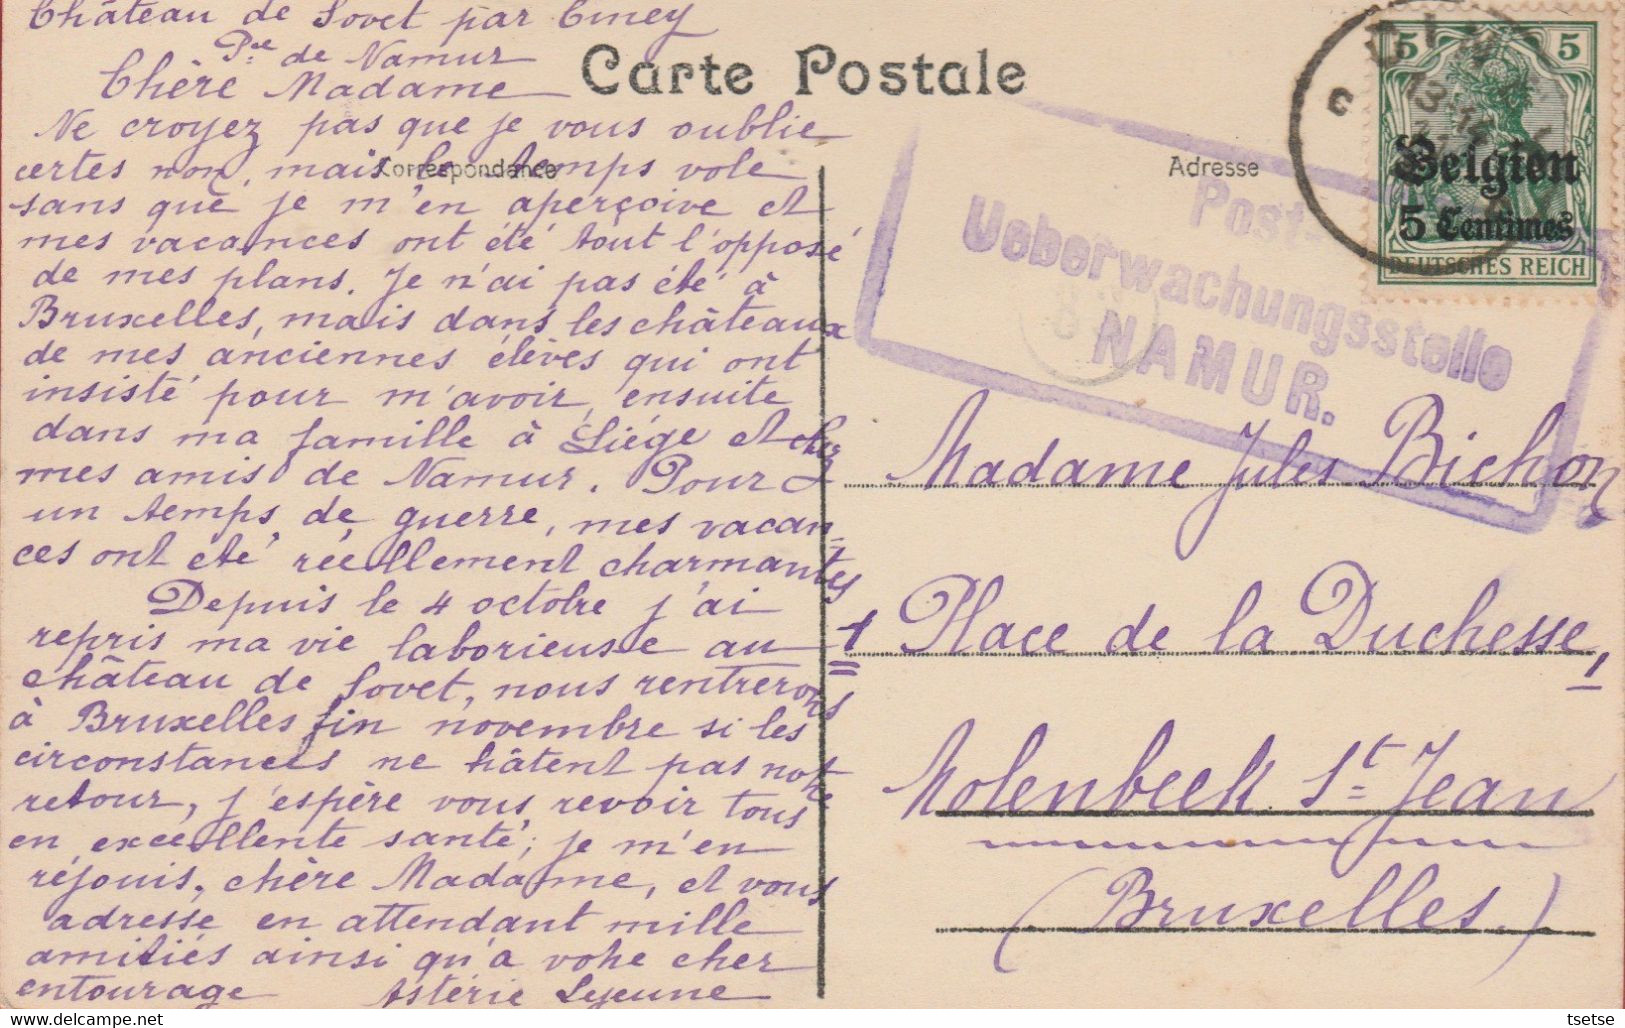 Château de Sovet par Ciney
Pce de Namur
Chère Madame
Carte Postale
Ne croyez pas que je vous oublie
certes non, mais le temps vole
Correspondance
sans que je m'en aperçoive et
mes vacances ont été tout l'opposé
de mes plans. Je n'ai pas été à
Bruxelles, mais dans les châteaux
de mes anciennes élèves qui ont
insisté pour m'avoir, ensuite
dans ma famille à Liége et chez
mes amis de Namur. Pour
un temps de guerre, mes vacan-
ces ont été réellement charmantes
Depuis le 4 octobre j'ai
repris ma vie laborieuse au
château de Sovet, nous rentrerons
à Bruxelles fin novembre si les
circonstances ne hâtent pas notre
retour, j'espère vous revoir tous
en excellente santé; je m'en
réjouis, chère Madame, et vous
adresse en attendant mille
amitiés ainsi qu'à votre cher
entourage Astérie Lejeune
Adresse
5 5
Belgien
5 Centimes
DEUTSCHES REICH
C
Post-
Ueberwachungsstelle
NAMUR.
Madame Jules Bichon
1 Place de la Duchesse, 1
Molenbeek St Jean
(Bruxelles.)
tsetse